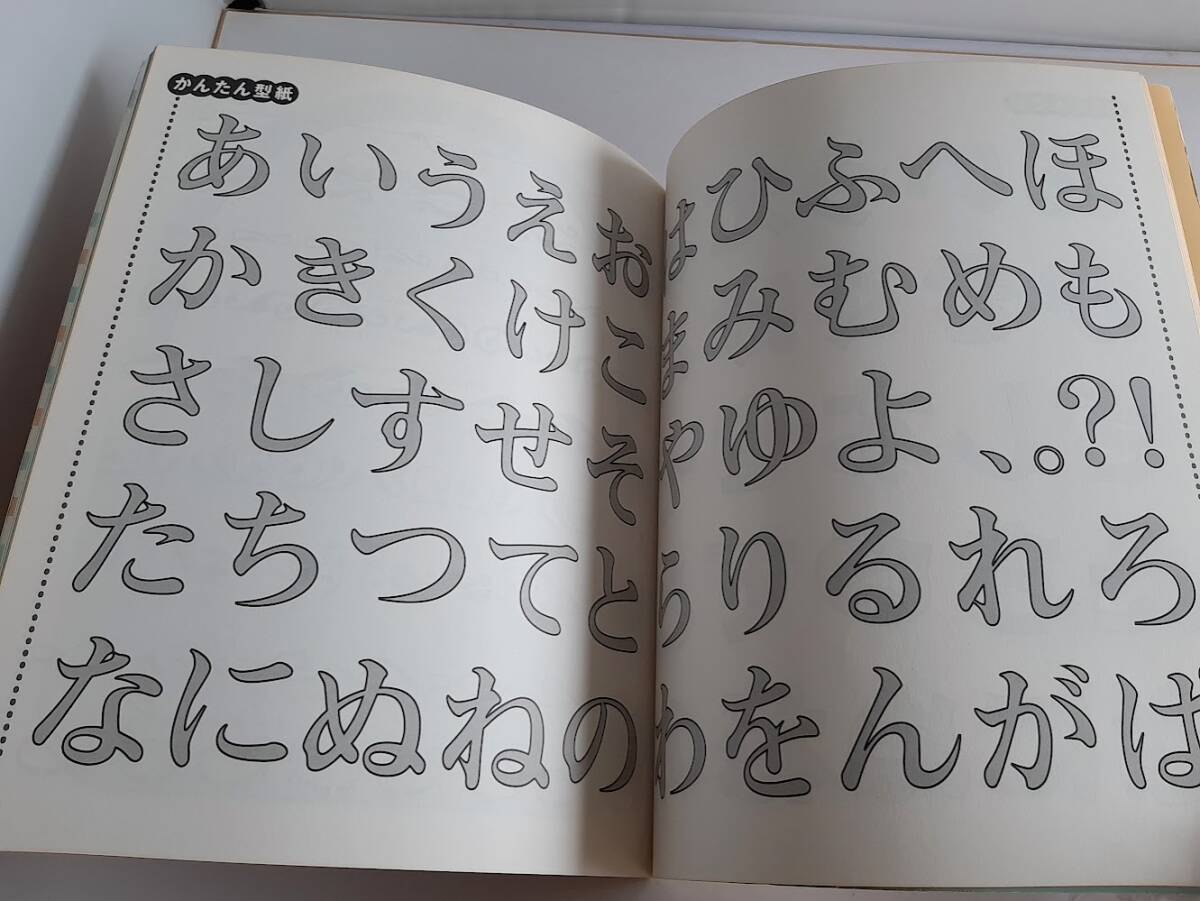 かんたん型紙
あいうえお
かきくけこ
さしすせそ
たちつてと
なにぬねの
はひふへほ
まみむめも
やゆよ、。?!
らりるれろ
わをんがぱ